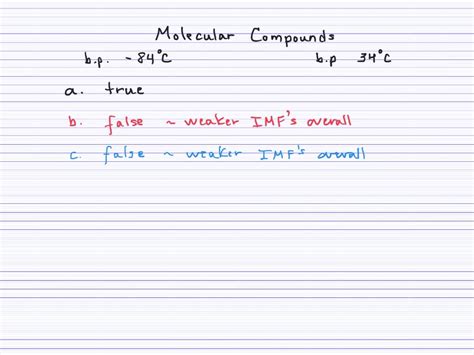 Molecular Compounds
b.p. -84°C b.p 34°C
a. true
b. false ~ weaker IMF's overall
c. false ~ weaker IMF's overall